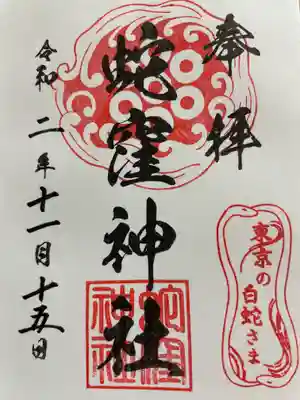 奉拝
蛇窪神社
蛇窪
神社
令和二年十一月十五日
東京の
白蛇さま